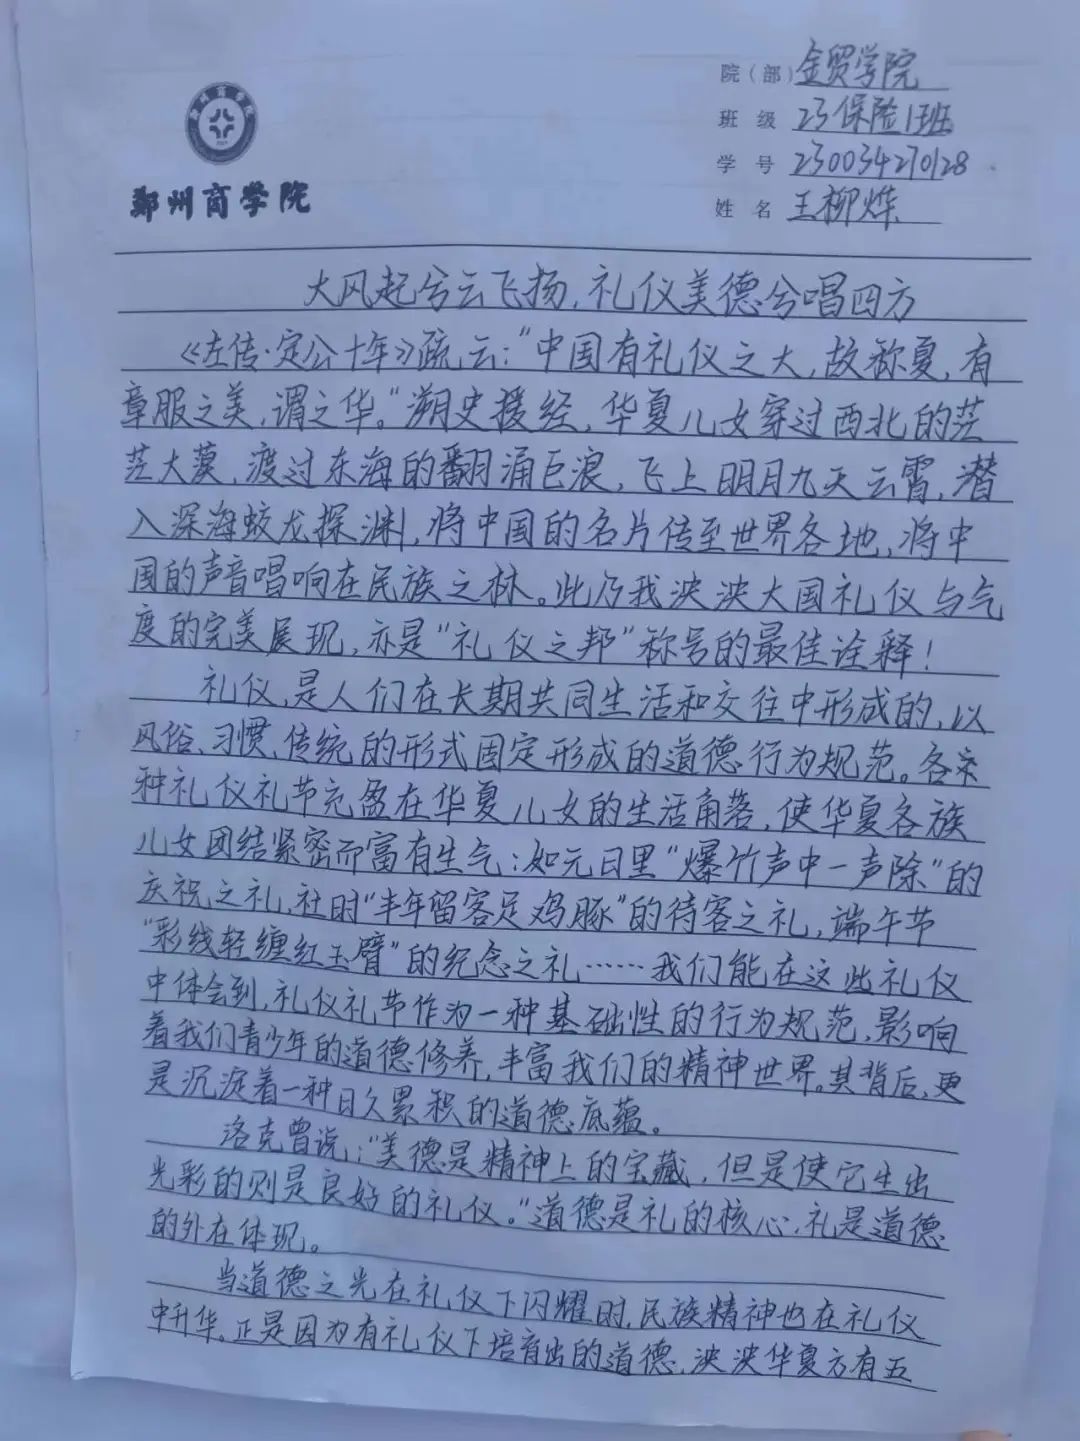 院（部）金贸学院
班 级 23保险1班
学 号 230034270128
郑州商学院
姓 名 王柳烨
大风起兮云飞扬，礼仪美德兮唱四方
《左传·定公十年》疏云：“中国有礼仪之大，故称夏，有
章服之美，谓之华。”溯史援经，华夏儿女穿过西北的茫
茫大漠，渡过东海的翻涌巨浪，飞上明月九天云霄，潜
入深海蛟龙探渊，将中国的名片传至世界各地，将中
国的声音唱响在民族之林。此乃我泱泱大国礼仪与气
度的完美展现，亦是“礼仪之邦”称号的最佳诠释！
礼仪，是人们在长期共同生活和交往中形成的，以
风俗、习惯、传统的形式固定形成的道德行为规范。各
种礼仪礼节充盈在华夏儿女的生活角落，使华夏各族
儿女团结紧密而富有生气：如元日里“爆竹声中一声除”的
庆祝之礼，社时“丰年留客足鸡豚”的待客之礼，端午节
“彩线轻缠红玉臂”的纪念之礼……我们能在这些礼仪
中体会到，礼仪礼节作为一种基础性的行为规范，影响
着我们青少年的道德修养，丰富我们的精神世界。其背后，更
是沉淀着一种日久累积的道德底蕴。
洛克曾说：“美德是精神上的宝藏，但是使它生出
光彩的则是良好的礼仪。”道德是礼的核心，礼是道德
的外在体现。
当道德之光在礼仪下闪耀时，民族精神也在礼仪
中升华。正是因为有礼仪下培育出的道德，泱泱华夏方有五